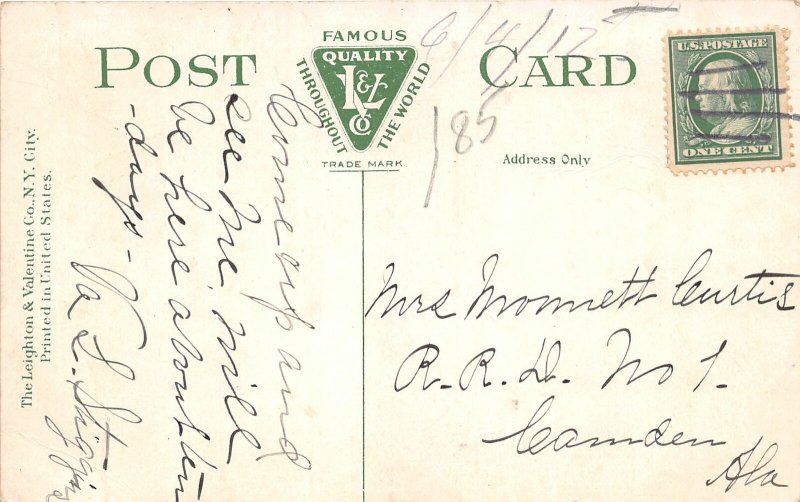 POST CARD
FAMOUS
QUALITY
L&V
Co
THROUGHOUT
THE WORLD
TRADE MARK
U.S. POSTAGE
ONE CENT
6/4/12
185
Address Only
The Leighton & Valentine Co., N.Y. City.
Printed in United States.
Come up and
see me, will
be here about ten
-days-
Va L.
Mrs Monnett Curtis
R. R. D. No 1.
Camden
Ala